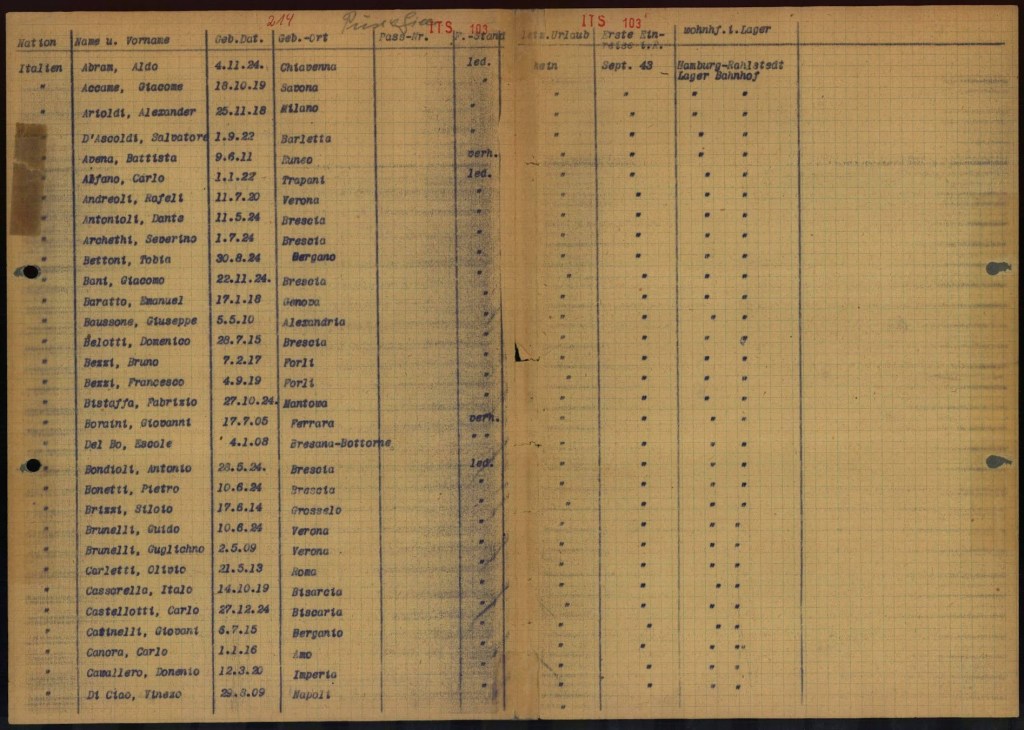 214 ITS 103 ITS 103
Nation Name u. Vorname Geb.Dat. Geb.-Ort Pass-Nr. F.-Stand Letz.Urlaub Erste Ein- wohnhf.i.Lager
reise i.R.
Italien Abram, Aldo 4.11.24. Chiavenna led. kein Sept. 43 Hamburg-Rahlstedt
Lager Bahnhof
" Accame, Giacome 18.10.19 Savona " " " " "
" Arioldi, Alexander 25.11.18 Milano " " " " "
D'Ascoldi, Salvatore 1.9.22 Barletta " " " " "
Avena, Battista 9.6.11 Kuneo verh. " " " "
Alfano, Carlo 1.1.22 Trapani led. " " " "
Andreoli, Rafeli 11.7.20 Verona " " " " "
" Antonioli, Dante 11.5.24 Brescia " " " " "
" Archethi, Severino 1.7.24 Brescia " " " " "
" Bettoni, Tobia 30.8.24 Bergano " " " " "
" Bani, Giacomo 22.11.24. Brescia " " " " "
" Baratto, Emanuel 17.1.18 Genova " " " " "
" Baussone, Giuseppe 5.5.10 Alexandria " " " " "
" Belotti, Domenico 28.7.15 Brescia " " " " "
" Bezzi, Bruno 7.2.17 Forli " " " " "
" Bezzi, Francesco 4.9.19 Forli " " " " "
" Bistaffa, Fabrizio 27.10.24. Mantowa " " " " "
" Boraini, Giovanni 17.7.05 Ferrara verh. " " " "
" Del Bo, Escole 4.1.08 Bresana-Bottorne " " " " " "
" Bondioli, Antonio 28.5.24. Brescia led. " " " "
" Bonetti, Pietro 10.6.24 Brescia " " " " "
" Brizzi, Siloio 17.6.14 Grosselo " " " " "
" Brunelli, Guido 10.6.24 Verona " " " " "
" Brunelli, Guglichno 2.5.09 Verona " " " " "
" Carletti, Olivio 21.5.13 Roma " " " " "
" Cassarella, Italo 14.10.19 Bisarcia " " " " "
" Castellotti, Carlo 27.12.24 Biscaria " " " " "
" Catinelli, Giovani 6.7.15 Bergamio " " " " "
" Canora, Carlo 1.1.16 Amo " " " " "
" Cavallero, Donenio 12.3.20 Imperia " " " " "
" Di Ciao, Vinezo 29.8.09 Napoli " " " " "